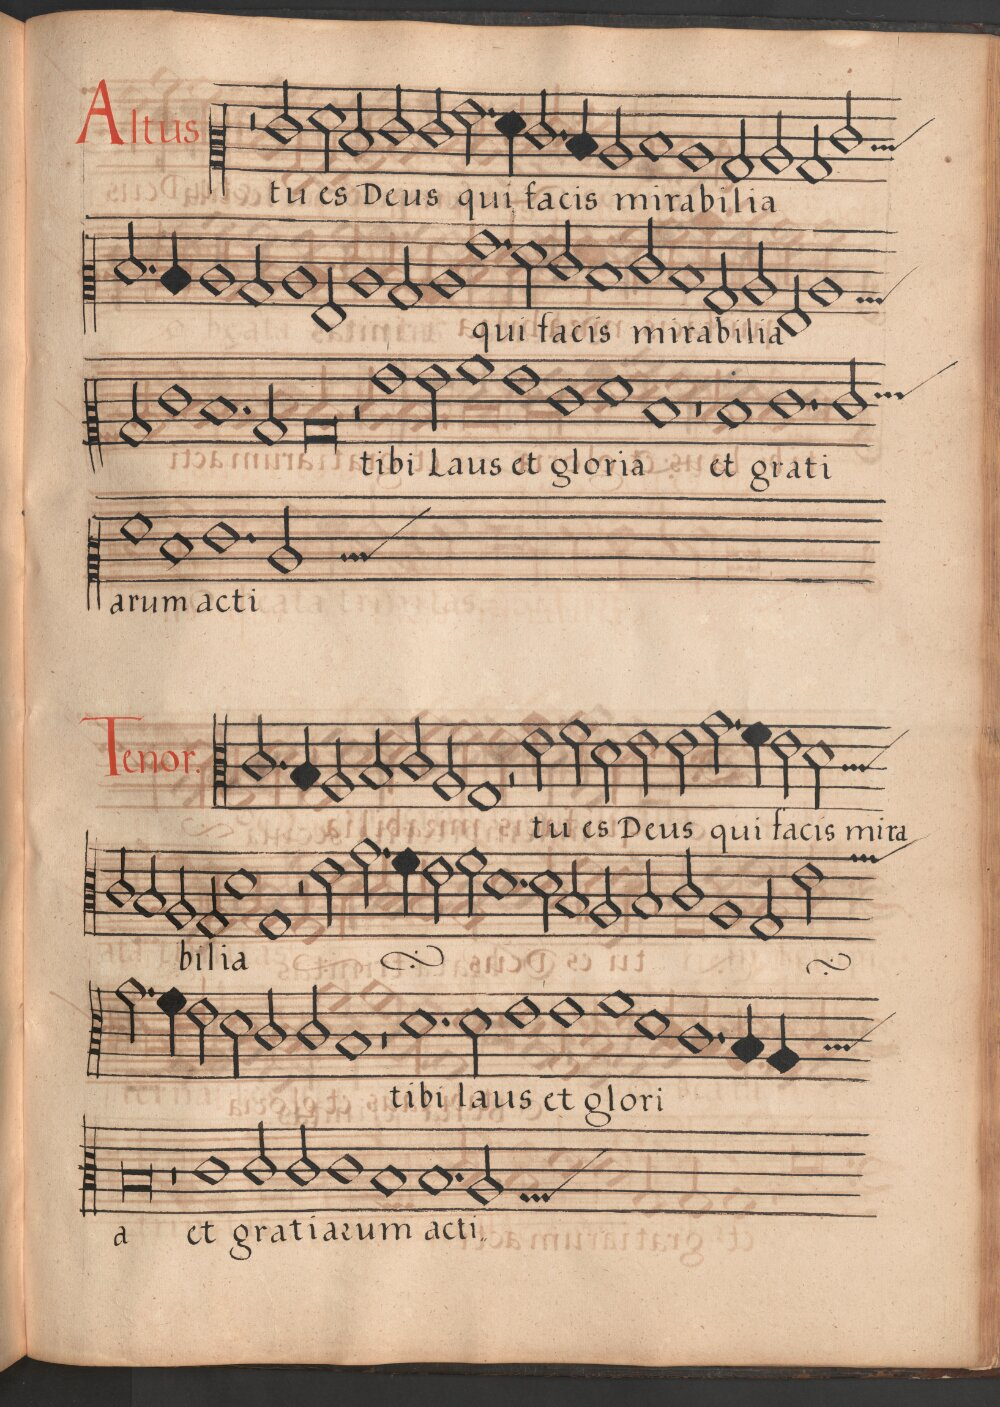 Altus
tu es Deus qui facis mirabilia
qui facis mirabilia
tibi Laus et gloria et grati
arum acti
Tenor.
tu es Deus qui facis mira
bilia
tibi laus et glori
a et gratiarum acti.